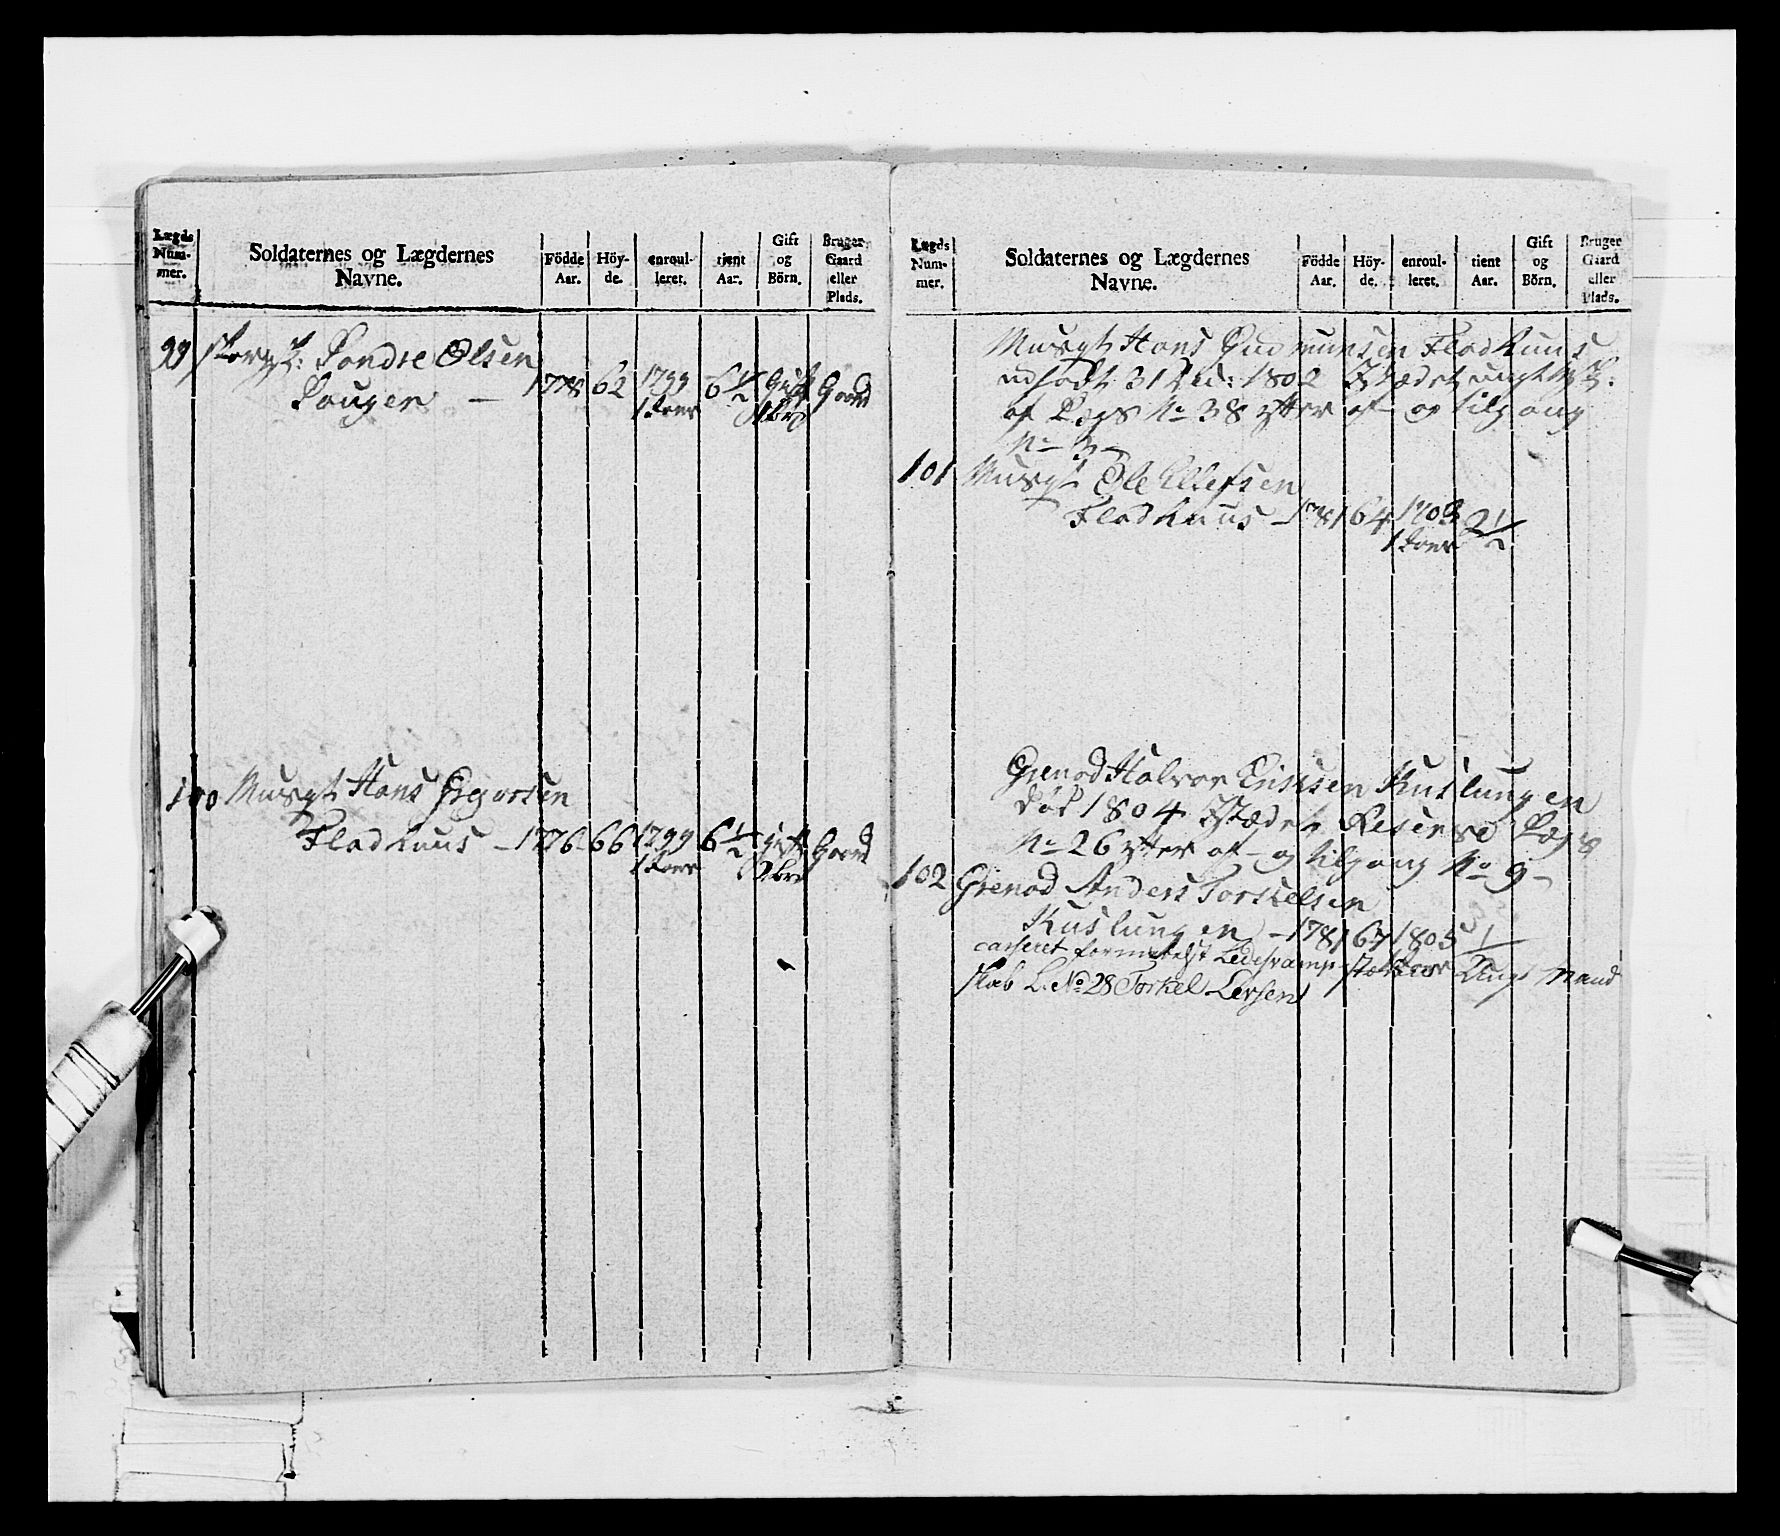 Lægds Num- mer.
Soldaternes og Lægdernes Navne.
Födde Aar.
Höy- de.
enroul- leret.
tient Aar.
Gift og Börn.
Bruger Gaard eller Plads.
99 Sondre Olsen
1778 62 1799 6½ Gift Gaard
1 Janr
100 Musqt Hans Gregorsen
Fladhuus – 1776 66 1799 6½ Gift Gaard
1 Janr
Lægds Num- mer.
Soldaternes og Lægdernes Navne.
Födde Aar.
Höy- de.
enroul- leret.
tient Aar.
Gift og Börn.
Bruger Gaard eller Plads.
Musqt Hans Gudmunsen Fladhuus
udsodt 31 Dec: 1802 I Stædet
af Lægs No 38 efter af- og tilgang
No 3 –
101 Musqt Ole Ellefsen
Fladhuus – 1781 64 1803 2½
1 Janr
Grenad Halvor Erichsen Kuslungen
död 1804 I Stædet Reserve Lægs
No 26 efter af- og tilgang No 9 –
102 Grenad Anders Torkelsen
Kuslungen – 1781 67 1805 ½
casseret formedelst
L. No 28 Torkel Larsen